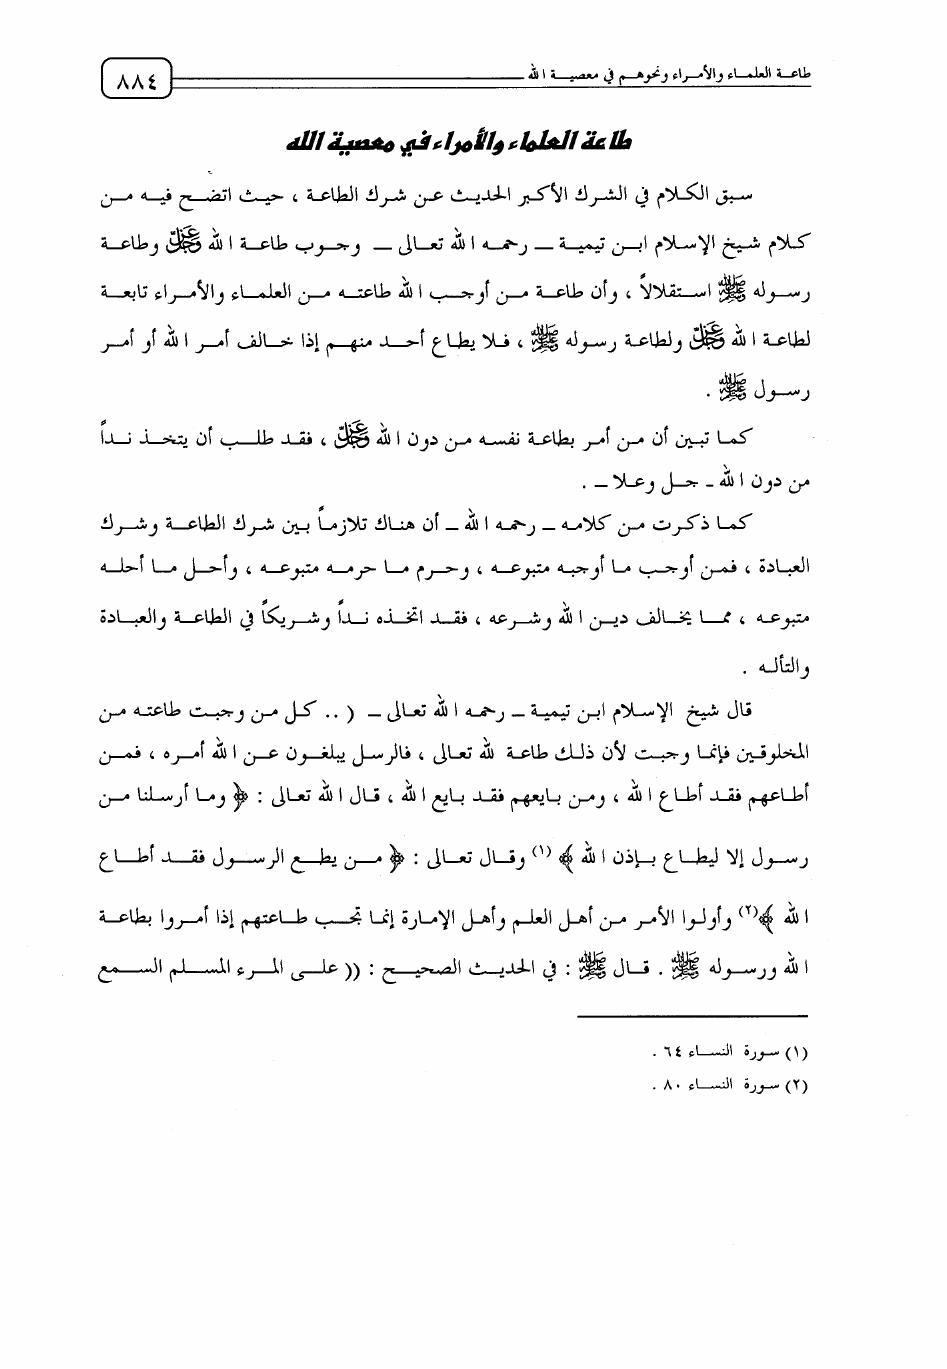 طاعة العلماء والأمراء ونحوهم في معصية الله
٨٨٤
طاعة العلماء والأمراء في معصية الله
سبق الكلام في الشرك الأكبر الحديث عن شرك الطاعة ، حيث اتضح فيه من
كلام شيخ الإسلام ابن تيمية ــ رحمه الله تعالى ــ وجوب طاعة الله ﷻ وطاعة
رسوله ﷺ استقلالاً ، وأن طاعة من أوجب الله طاعته من العلماء والأمراء تابعة
لطاعة الله ﷻ ولطاعة رسوله ﷺ ، فلا يطاع أحد منهم إذا خالف أمر الله أو أمر
رسول ﷺ .
كما تبين أن من أمر بطاعة نفسه من دون الله ﷻ ، فقد طلب أن يتخذ نداً
من دون الله ـ جل وعلا ــ .
كما ذكرت من كلامه ــ رحمه الله ــ أن هناك تلازماً بين شرك الطاعة وشرك
العبادة ، فمن أوجب ما أوجبه متبوعه ، وحرم ما حرمه متبوعه ، وأحل ما أحله
متبوعه ، مما يخالف دين الله وشرعه ، فقد اتخذه نداً وشريكاً في الطاعة والعبادة
والتأله .
قال شيخ الإسلام ابن تيمية ــ رحمه الله تعالى ــ ( .. كل من وجبت طاعته من
المخلوقين فإنما وجبت لأن ذلك طاعة لله تعالى ، فالرسل يبلغون عن الله أمره ، فمن
أطاعهم فقد أطاع الله ، ومن بايعهم فقد بايع الله ، قال الله تعالى : ﴿ وما أرسلنا من
رسول إلا ليطاع بإذن الله ﴾ (١) وقال تعالى : ﴿ من يطع الرسول فقد أطاع
الله ﴾(٢) وأولوا الأمر من أهل العلم وأهل الإمارة إنما تجب طاعتهم إذا أمروا بطاعة
الله ورسوله ﷺ . قال ﷺ : في الحديث الصحيح : (( على المرء المسلم السمع
(١) سورة النساء ٦٤ .
(٢) سورة النساء ٨٠ .